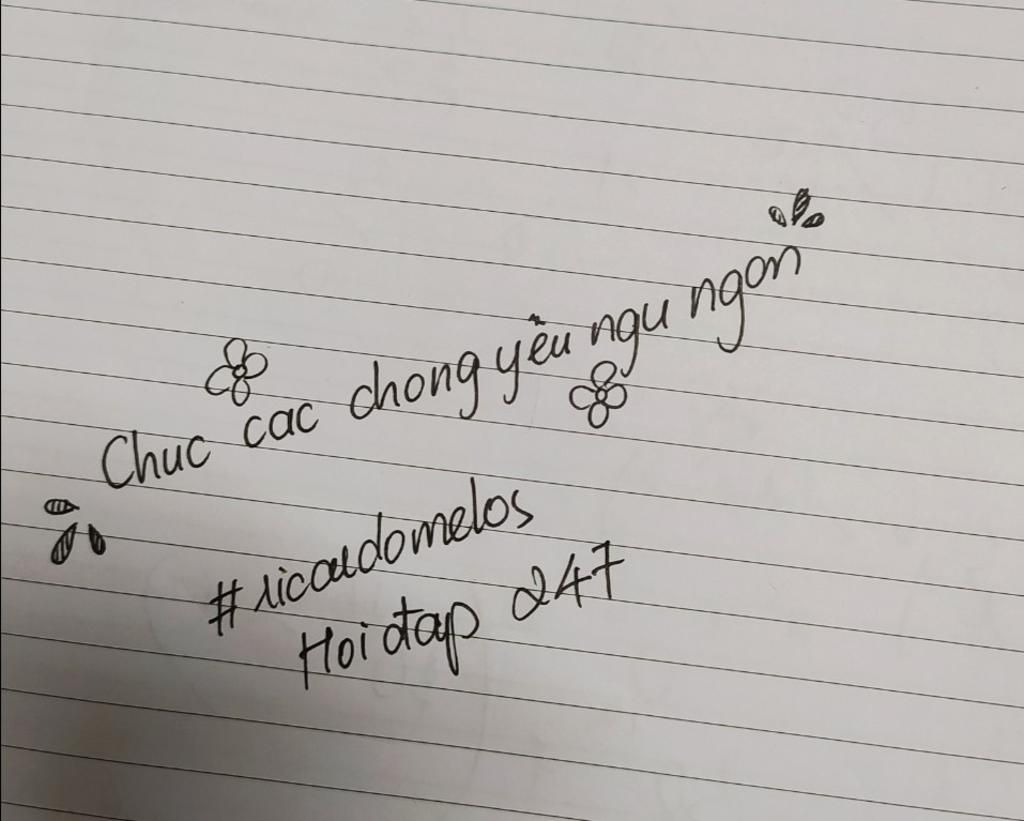 Chuc cac chong yêu ngu ngon
#ricaudomelos
Hoi đap 247